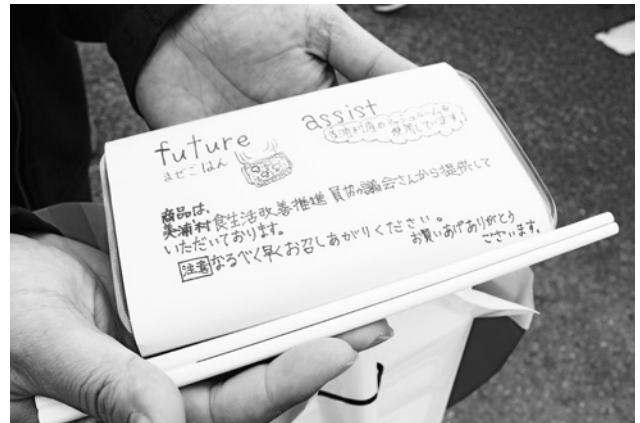 future assist
まぜごはん
美浦村産のマッシュルームを
使用しています。
商品は、
美浦村食生活改善推進員協議会さんから提供して
いただいております。
注意 なるべく早くお召しあがりください。
お買いあげありがとう
ございます。